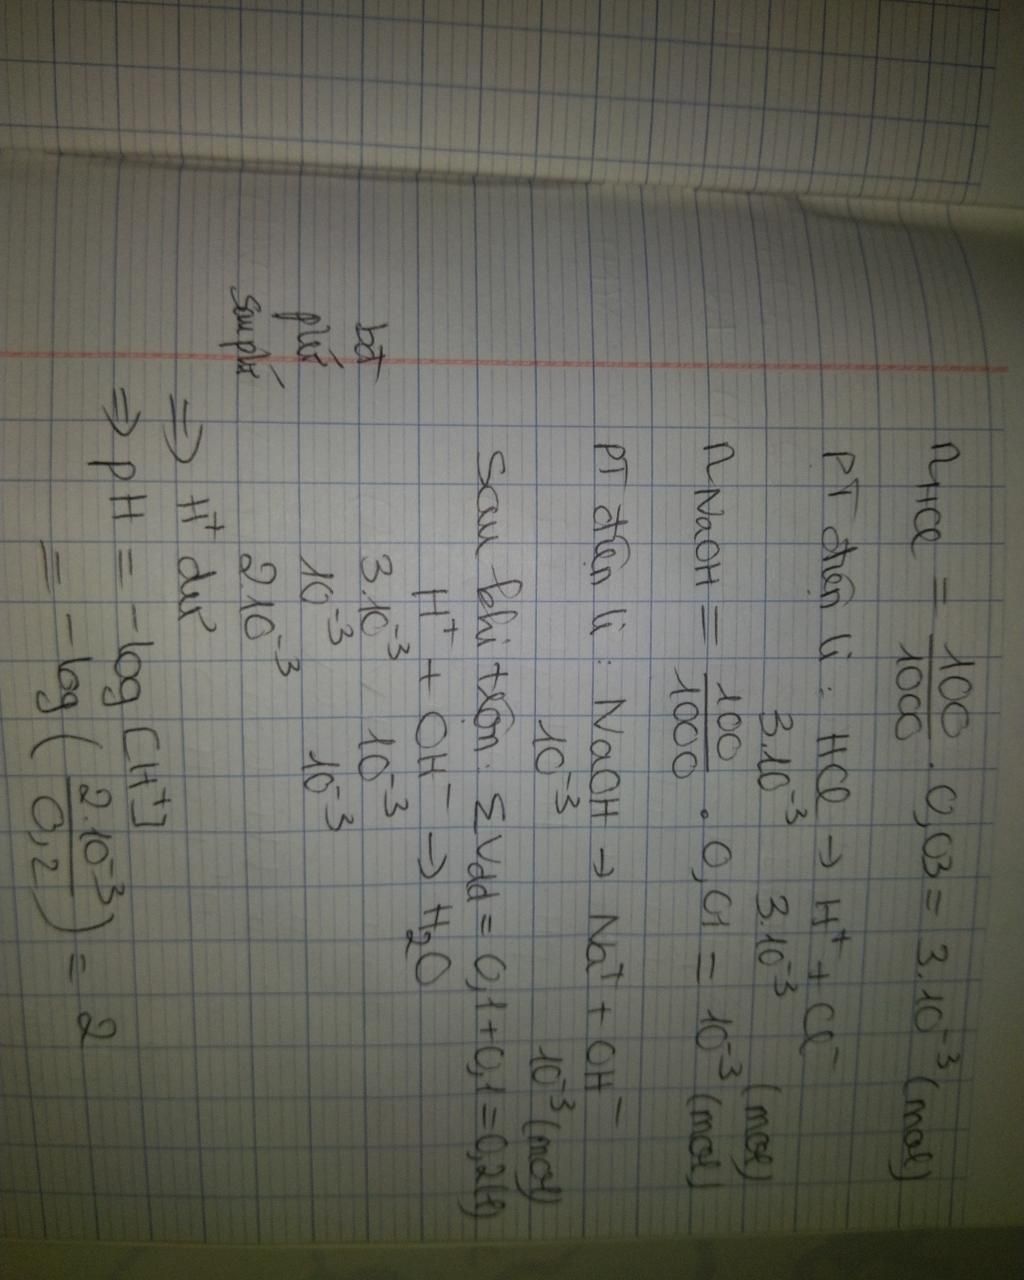 n HCl = 100/1000 . 0,03 = 3.10⁻³ (mol)
PT điện li : HCl → H⁺ + Cl⁻
3.10⁻³ 3.10⁻³ (mol)
n NaOH = 100/1000 . 0,01 = 10⁻³ (mol)
PT điện li : NaOH → Na⁺ + OH⁻
10⁻³ 10⁻³ (mol)
Sau khi trộn: ΣVdd = 0,1 + 0,1 = 0,2 (l)
H⁺ + OH⁻ → H₂O
bđ 3.10⁻³ 10⁻³
pứ 10⁻³ 10⁻³
sau pứ 2.10⁻³
⇒ H⁺ dư
⇒ pH = -log [H⁺]
= -log (2.10⁻³/0,2) = 2